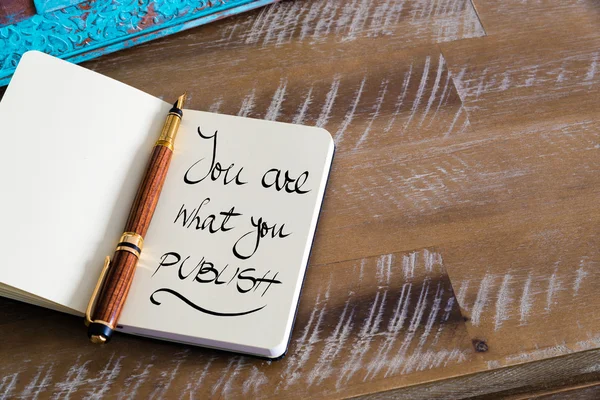 You are
what you
PUBLISH